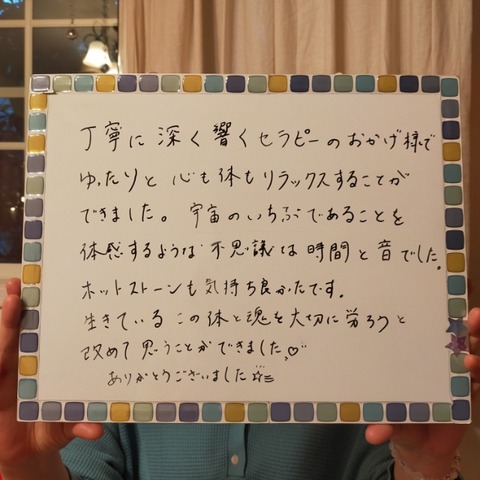 丁寧に深く響くセラピーのおかげ様で
ゆったりと 心も体もリラックスすることが
できました。宇宙のいちぶであることを
体感するような 不思議な時間と音でした。
ホットストーンも気持ち良かたです。
生きている この体と魂を大切に労ろうと
改めて思うことができました♡
ありがとうございました☆